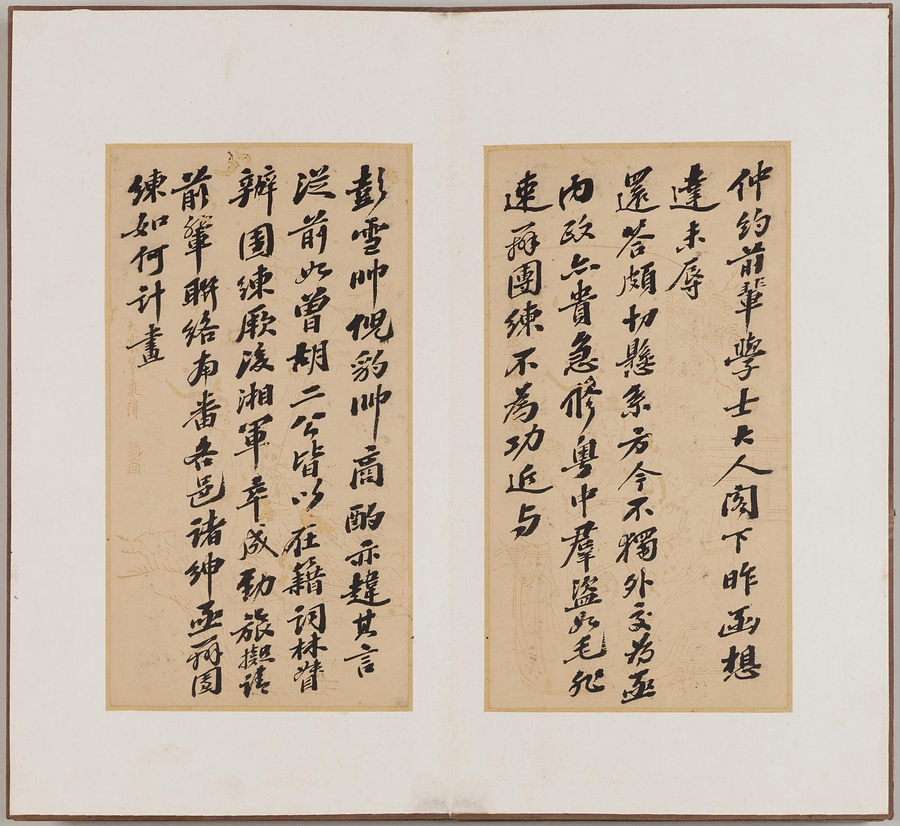 仲約前輩學士大人閣下昨函想
達未辱
還答頗切懸系方今不獨外交為亟
內政亦貴急修粵中羣盜如毛非
速辦團練不為功近与
彭雪帅倪豹帅商酌亦韙其言
從前如曾胡二公皆以在籍詞林督
辦團練厥後湘軍卒成勁旅擬請
前輩聯絡南番各邑諸紳亟辦團
練如何計畫